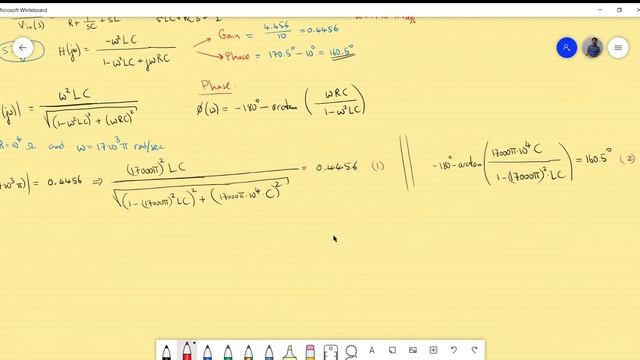 Microsoft Whiteboard
Vin(s) R + 1/sC + sL s²LC + RCs + 1
H(jω) = -ω²LC / 1-ω²LC + jωRC
Gain = 4.456/10 = 0.4456
Phase = 170.5° - 10° = 160.5°
(jω)| = ω²LC / √((1-ω²LC)² + (ωRC)²)
Phase:
φ(ω) = -180° - arctan (ωRC / 1-ω²LC)
R=10⁴ Ω and ω = 17·10³π rad/sec
·10³π)| = 0.4456 ⇒ (17000π)² LC / √((1-(17000π)² LC)² + (17000π·10⁴·C)²) = 0.4456 (1)
-180° - arctan (17000π·10⁴·C / 1-(17000π)²·LC) = 160.5° (2)